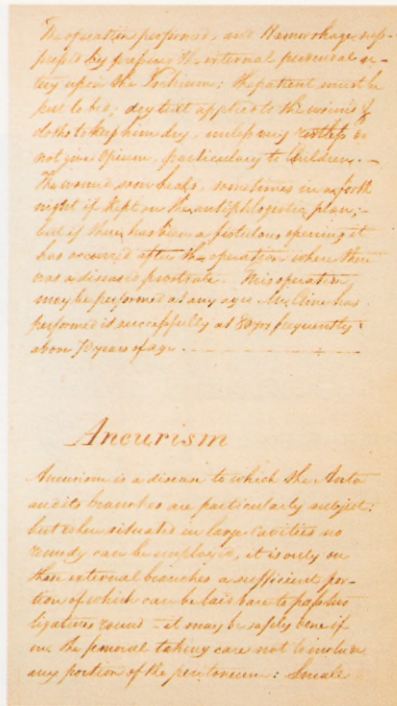 The operation performed, and Hemorhage sup-
pressed by pressing the internal pudendal ar-
tery upon the Ischium; the patient must be
put to bed; dry lint applied to the wound &
cloths to keep him dry, unless very restless do
not give Opium, particulary to Children. —
The wound soon heals, sometimes in a forth
night if kept on the antiphlogistic plan; -
but if there has been a fistulous opening it
has occurred after the operation when there
was a diseased prostrate. This operation
may be performed at any age. Mr. Cline has
performed it successfully at 80 yrs frequently
above 70 years of age.
Aneurism
Aneurism is a disease to which the Aorta
and its branches are particularly subject:
but when situated in large cavities no
remedy can be employed, it is only on
than external branches a sufficient por-
tion of which can be laid bare to pass
ligatures round - it may be safely done if
in the femoral taking care not to include
any portion of the peritoneum: Small